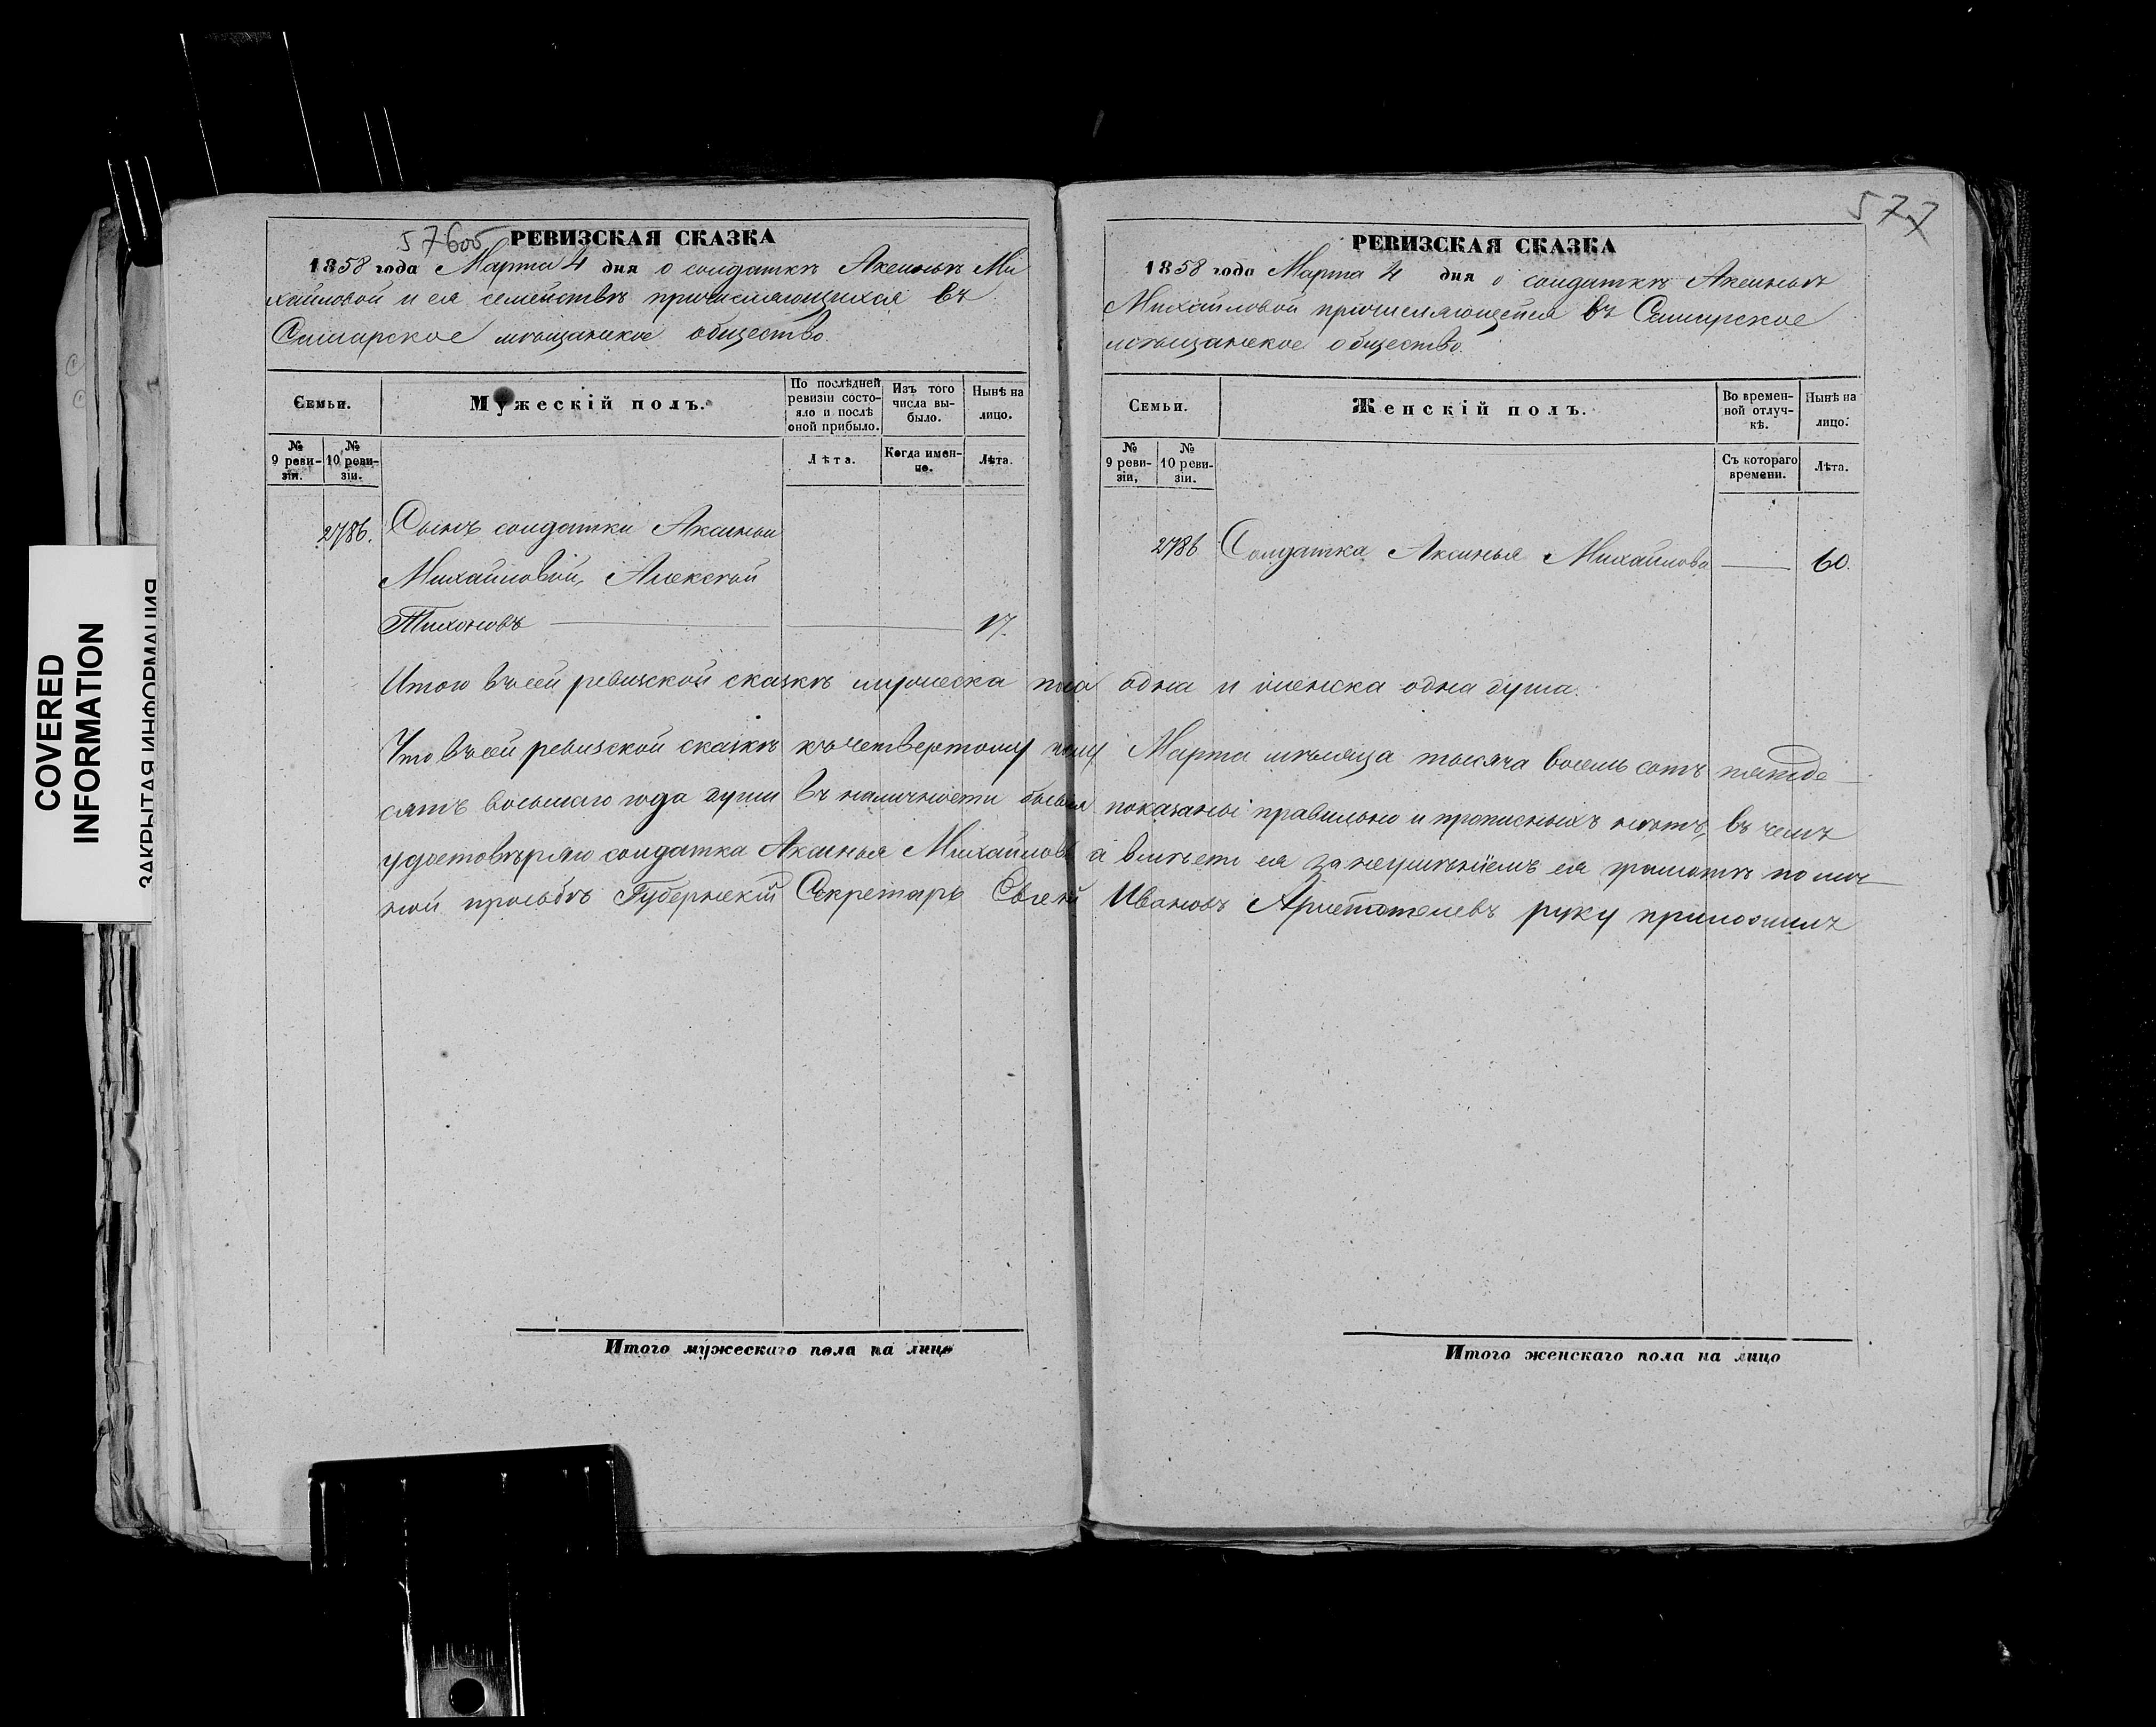 COVERED
INFORMATION
ЗАКРЫТАЯ ИНФОРМАЦИЯ
576об
РЕВИЗСКАЯ СКАЗКА
1858 года Марта 4 дня о солдаткѣ Аксиньѣ Ми
хайловой и ея семействѣ причисляющихся въ
Самарское мѣщанское общество.
Семьи.
Мужескій полъ.
По послѣдней
ревизіи состо-
яло и послѣ
оной прибыло.
Изъ того
числа вы-
было.
Нынѣ на
лицо.
№
9 реви-
зіи.
№
10 реви-
зіи.
Лѣта.
Когда имен-
но.
Лѣта.
2786. Сынъ солдатки Аксиньи
Михайловой, Алексѣй
Тихоновъ 17.
577
РЕВИЗСКАЯ СКАЗКА
1858 года Марта 4 дня о солдаткѣ Аксиньѣ
Михайловой причисляющейся въ Самарское
мѣщанское общество.
Семьи.
Женскій полъ.
Во времен-
ной отлуч-
кѣ.
Нынѣ на
лицо.
№
9 реви-
зіи,
№
10 реви-
зіи.
Съ котораго
времени.
Лѣта.
2786 Солдатка Аксинья Михайлова 60.
Итого въ сей ревизской сказкѣ мужеска пола одна и женска одна душа.
Что въ сей ревизской сказкѣ къ четвертому числу Марта мѣсяца тысяча восемь сотъ пятьде
сятъ восьмаго года души въ наличности бывшія показаны правильно и прописныхъ нѣтъ, въ чемъ
удостовѣряю солдатка Аксинья Михайлова а вмѣсто ея за неумѣніемъ ея грамотѣ по лич
ной просьбѣ Губернскій Секретарь Ивановъ Аристотелевъ руку приложилъ
Итого мужескаго пола на лицо
Итого женскаго пола на лицо